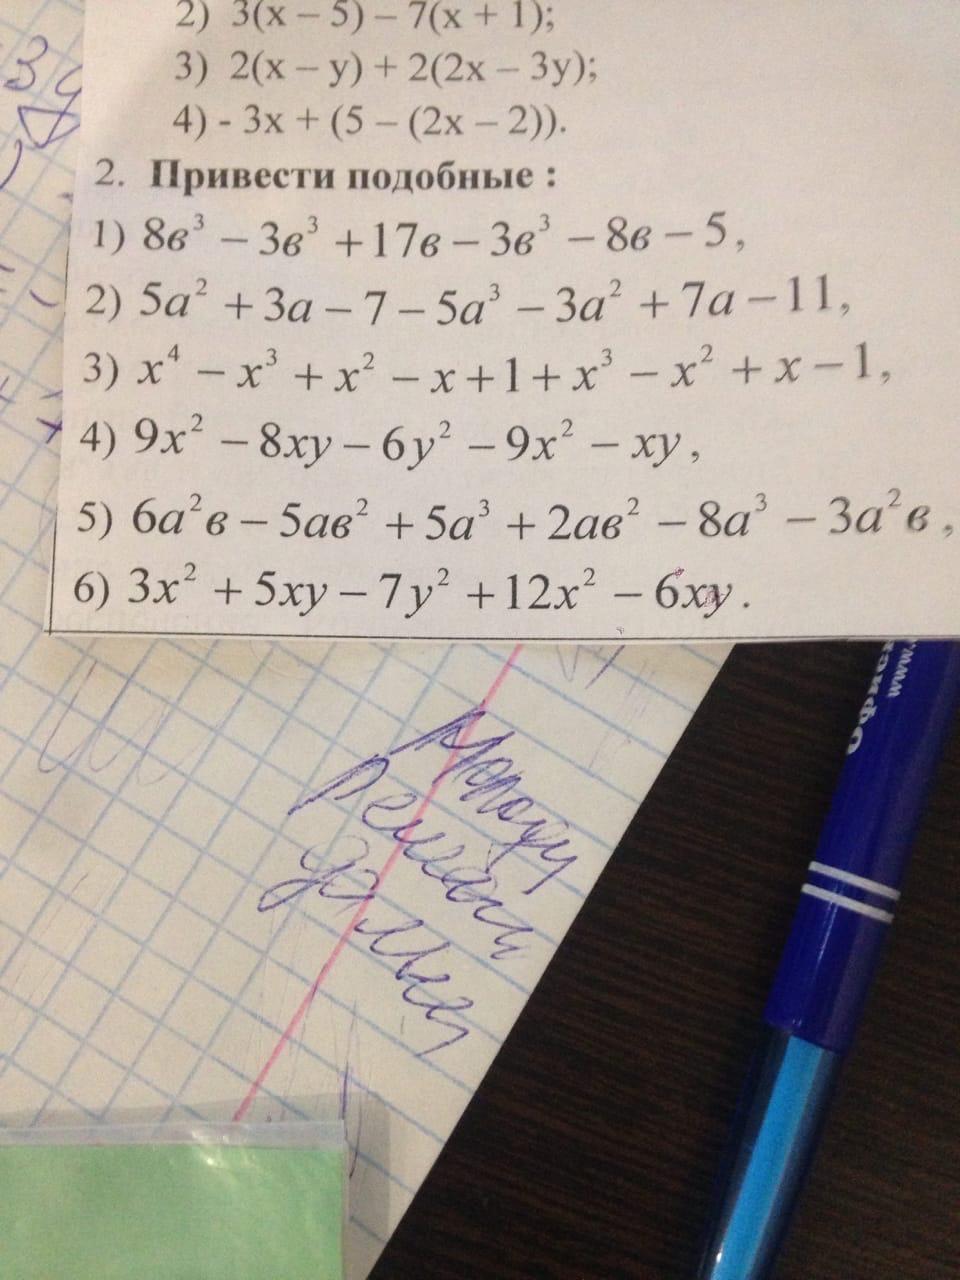 2) 3(x – 5) – 7(x + 1);
3) 2(x – y) + 2(2x – 3y);
4) - 3x + (5 – (2x – 2)).
2. Привести подобные :
1) 8в³ – 3в³ +17в – 3в³ – 8в – 5,
2) 5a² + 3a – 7 – 5a³ – 3a² + 7a – 11,
3) x⁴ – x³ + x² – x + 1 + x³ – x² + x – 1,
4) 9x² – 8xy – 6y² – 9x² – xy,
5) 6a²в – 5aв² + 5a³ + 2aв² – 8a³ – 3a²в,
6) 3x² + 5xy – 7y² +12x² – 6xy.
www.